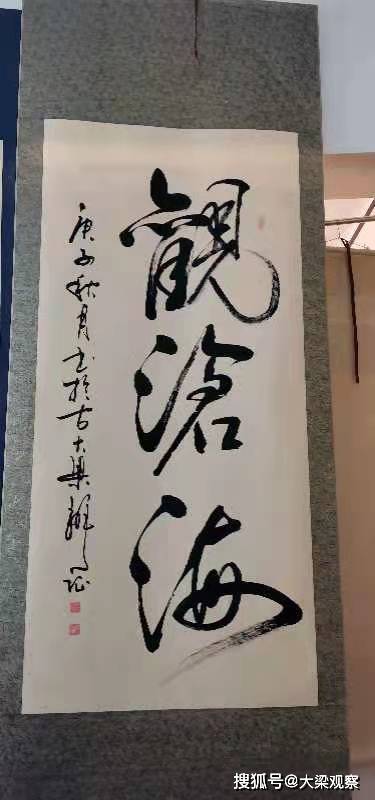 觀滄海
庚子秋月書於古大梁
搜狐号@大梁观察